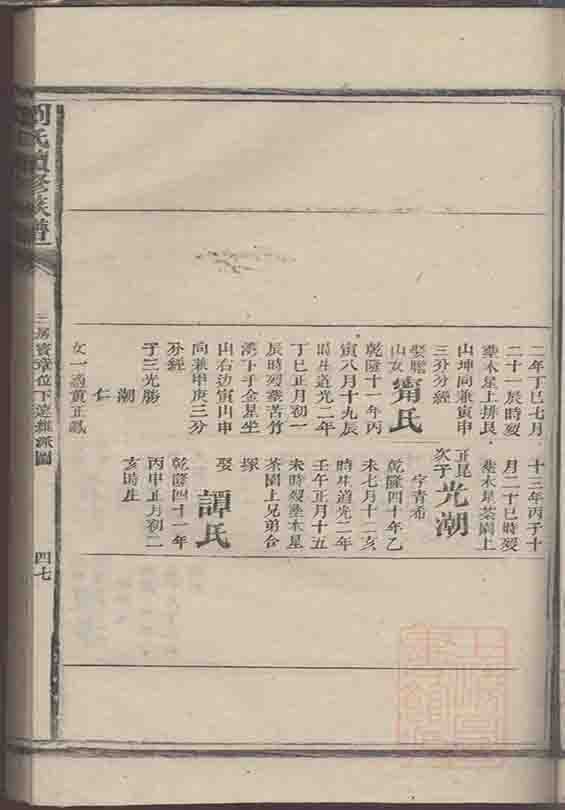 二年丁巳七月
二十一辰時歿
塟木星上排艮
山坤向兼寅申
三分分經
娶贈
山女
甯氏
乾隆十一年丙
寅八月十九辰
時生道光二年
丁巳正月初一
辰時歿塟苦竹
灣下手金星坐
山右边寅山申
向兼甲庚三分
分經
子三光勝
潮
仁
女一適黃正鳳
十三年丙子十
月二十巳時歿
塟木星茶園上
正昆
次子
光潮
字青希
乾隆四十年乙
未七月十二亥
時生道光二年
壬午正月十五
未時歿塟木星
茶園上兄弟合
塚
娶
譚氏
乾隆四十一年
丙申正月初二
亥時生
劉氏續修族譜
三房寶章位下達雄派圖
四七